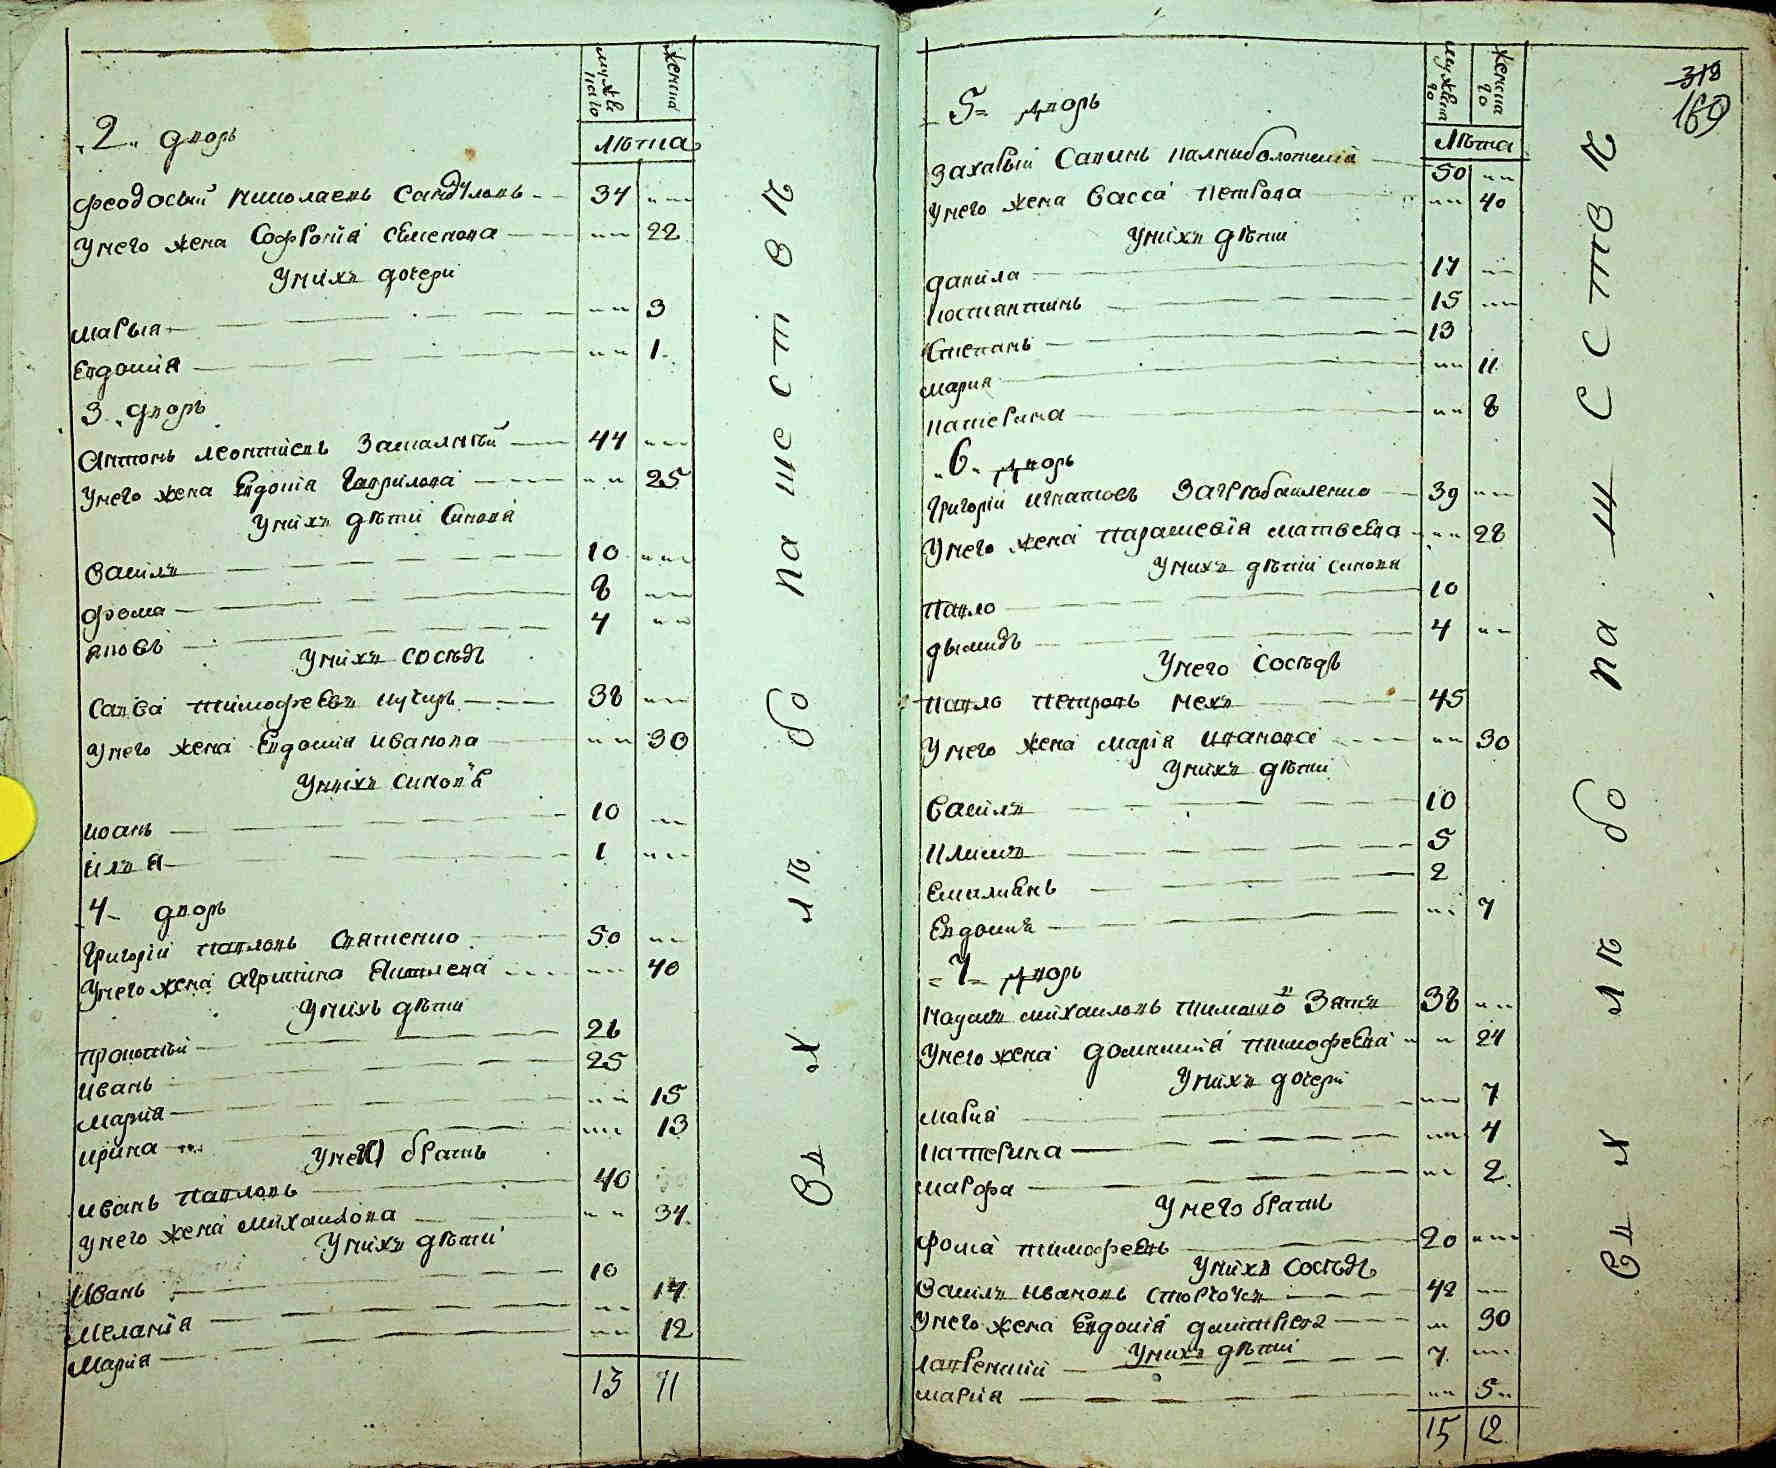 мужескаго женска
лѣта
2 дворъ
Феодосий Николаевъ Сандуловъ 34
У него жена Софрония Семенова 22
У них дочери
Марья 3
Евдокия 1
3 дворъ
Антонъ Леонтиевъ 44
У него жена Евдокия Гаврилова 25
У нихъ дѣти синовя
Василъ 10
Фома 8
Яковъ 4
У нихъ сосѣдъ
Савва Тимофеевъ 38
У него жена Евдокия Иванова 30
У нихъ синовѣ
Иоанъ 10
Илъя 1
4 дворъ
Григорій Павловъ 50
У него жена Агрипина 40
У нихъ дѣти
Прокопий 26
Иванъ 25
Мария 15
Ирина 13
У него братъ
Иванъ Павловъ 40
У него жена Михаилова 34
У нихъ дѣти
Иванъ 10
Мелания 14
Мария 12
13 11
318
169
лѣта
5 дворъ
Захарий Савинъ 50
У него жена Васса Петрова 40
У нихъ дѣти
Данила 17
Костантинъ 15
Степанъ 13
Мария 11
Катерина 8
6 дворъ
Григорій Игнатовъ 39
У него жена Параскевія Матвеева 28
У нихъ дѣтій синовя
Павло 10
Дымидъ 4
У него сосѣдъ
Павлъ Петровъ 45
У него жена Мария Иванова 30
У нихъ дѣти
Василъ 10
Климъ 5
Емилиянъ 2
Евдокия 7
7 дворъ
Наумъ Михаиловъ 38
У него жена Домникия Тимофеева 24
У нихъ дочери
Мария 7
Катерина 4
Марфа 2
У него братъ
Фома Тимофеевъ 20
У нихъ сосѣдъ
Василъ Ивановъ 42
У него жена Евдокия 30
У нихъ дѣти
Лаврентий 7
Мария 5
15 12